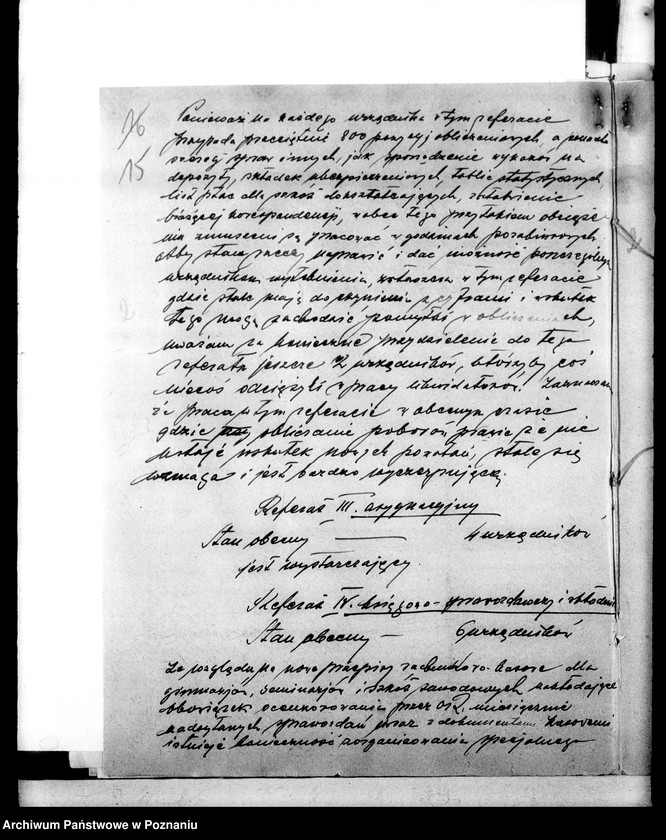 16
15
Ponieważ na każdego urzędnika w tym referacie
przypada przeciętnie 800 pozycji obliczeniowych, a ponadto
szereg spraw innych, jak sporządzenie wykazów na
depozyty, składek ubezpieczeniowych, tablic statystycznych
list płac dla szkół dokształcających, załatwienie
bieżącej korespondencji, wobec tego przy takiem obciąże
niu zmuszeni są pracować w godzinach pozabiurowych.
Ażeby stan rzeczy naprawić i dać możność poszczególnym
urzędnikom wytchnienia, zwłaszcza w tym referacie
gdzie stale mają do czynienia z cyframi i wskutek
tego mogą zachodzić pomyłki w obliczeniach,
uważam za konieczne przydzielenie do tego
referatu jeszcze 2 urzędników, którzyby coś
niecoś odciążyli w pracy likwidatorów. Zaznaczam
że praca w tym referacie w obecnym czasie
gdzie obliczanie poborów prawie że nie
ustaje wskutek nowych podań, stale się
wzmaga i jest bardzo wyczerpującą.
Referat III. asygnacyjny
Stan obecny — 4 urzędników
jest wystarczający.
Referat IV. księgowo-sprawozdawczy i
Stan obecny — 6 urzędników
Ze względu na nowe przepisy rachunkowo-kasowe dla
gimnazjów, seminarjów i szkół zawodowych nakładające
obowiązek przez miesięcznie
nadsyłanych sprawozdań wraz z dokumentami kasowemi
istnieje konieczność zorganizowania specjalnego
Archiwum Państwowe w Poznaniu